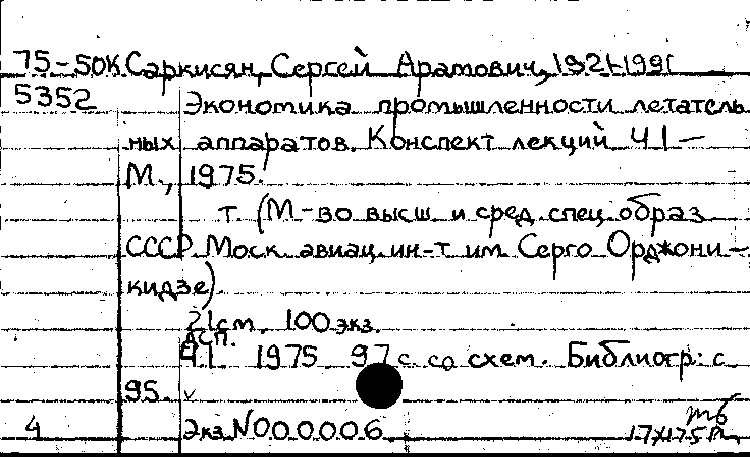 75-50К Саркисян, Сергей Арамович, 1921-1991
5352 Экономика промышленности летатель
ных аппаратов. Конспект лекций Ч 1 —
М., 1975.
т. (М-во высш. и сред. спец. образ
СССР Моск. авиац. ин-т им. Серго Орджони-
кидзе)
21см. 100 экз.
ДСП.
Ч.1. 1975 97 с. со схем. Библиогр: с
95. v
4 Экз N000006
17/XI 75